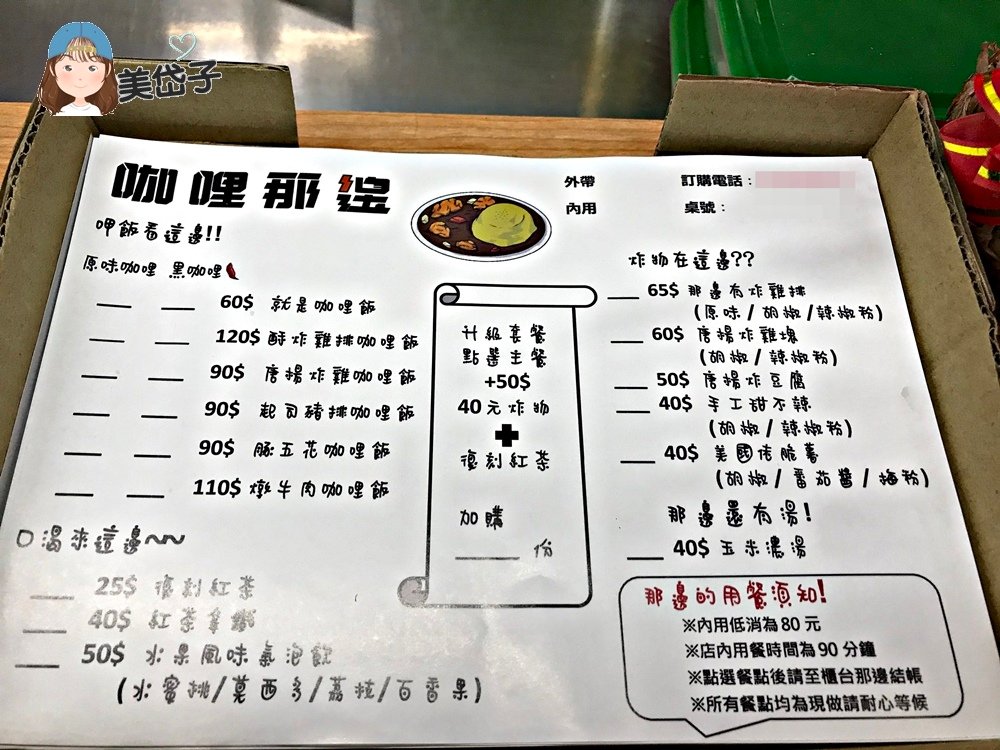 美岱子
咖哩那邊
外帶
內用
訂購電話：
桌號：
呷飯看這邊!!
原味咖哩 黑咖哩
60$ 就是咖哩飯
120$ 酥炸雞排咖哩飯
90$ 唐揚炸雞咖哩飯
90$ 起司豬排咖哩飯
90$ 豚五花咖哩飯
110$ 燉牛肉咖哩飯
口渴來這邊~~
25$ 復刻紅茶
40$ 紅茶拿鐵
50$ 水果風味氣泡飲
(水蜜桃/莫西多/荔枝/百香果)
升級套餐
點選主餐
+50$
40元炸物
+
復刻紅茶
加購
份
炸物在這邊??
65$ 那邊有炸雞排
(原味/胡椒/辣椒粉)
60$ 唐揚炸雞塊
(胡椒/辣椒粉)
50$ 唐揚炸豆腐
40$ 手工甜不辣
(胡椒/辣椒粉)
40$ 美國佬脆薯
(胡椒/番茄醬/梅粉)
那邊還有湯!
40$ 玉米濃湯
那邊的用餐須知!
※內用低消為80元
※店內用餐時間為90分鐘
※點選餐點後請至櫃台那邊結帳
※所有餐點均為現做請耐心等候